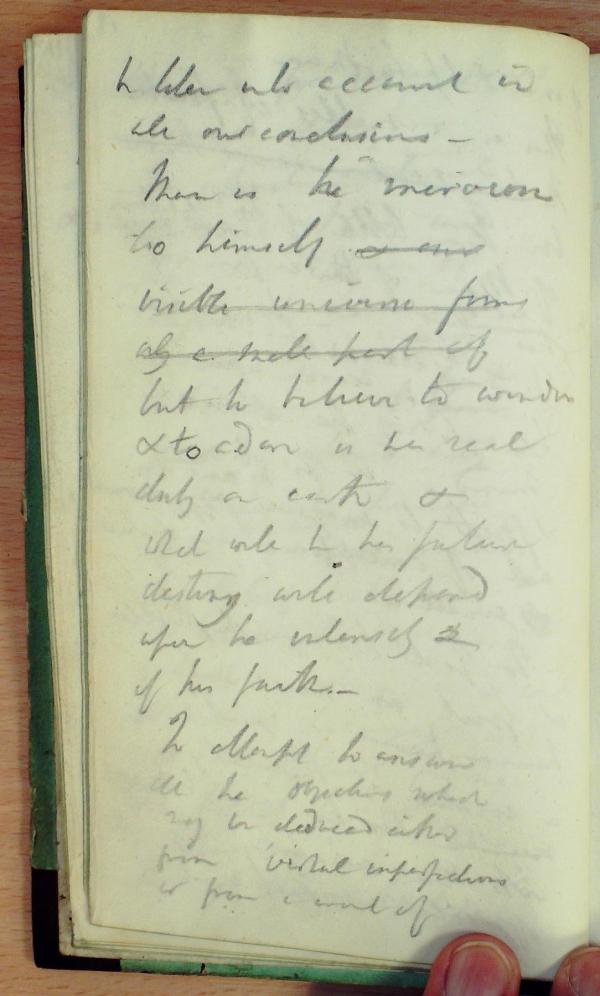 be taken into account in
all our conclusions –
Man is the microcosm
to himself & our
visible universe forms
only a small part of
but to believe to wonder
& to adore is his real
duty on earth &
what will be his future
destiny will depend
upon the intensity
of his faith. –
To attempt to answer
all the objections which
may be deduced either
from verbal imperfections
or from a want of